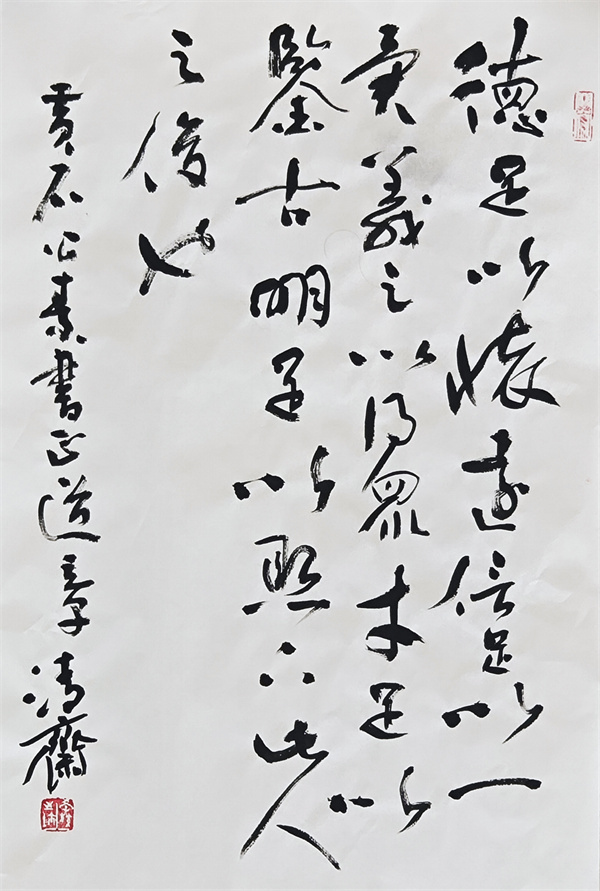 德足以懷遠信足以一
異義足以得眾才足以
鑒古明足以照下此人
之俊也
黄石公素書正道章清齋